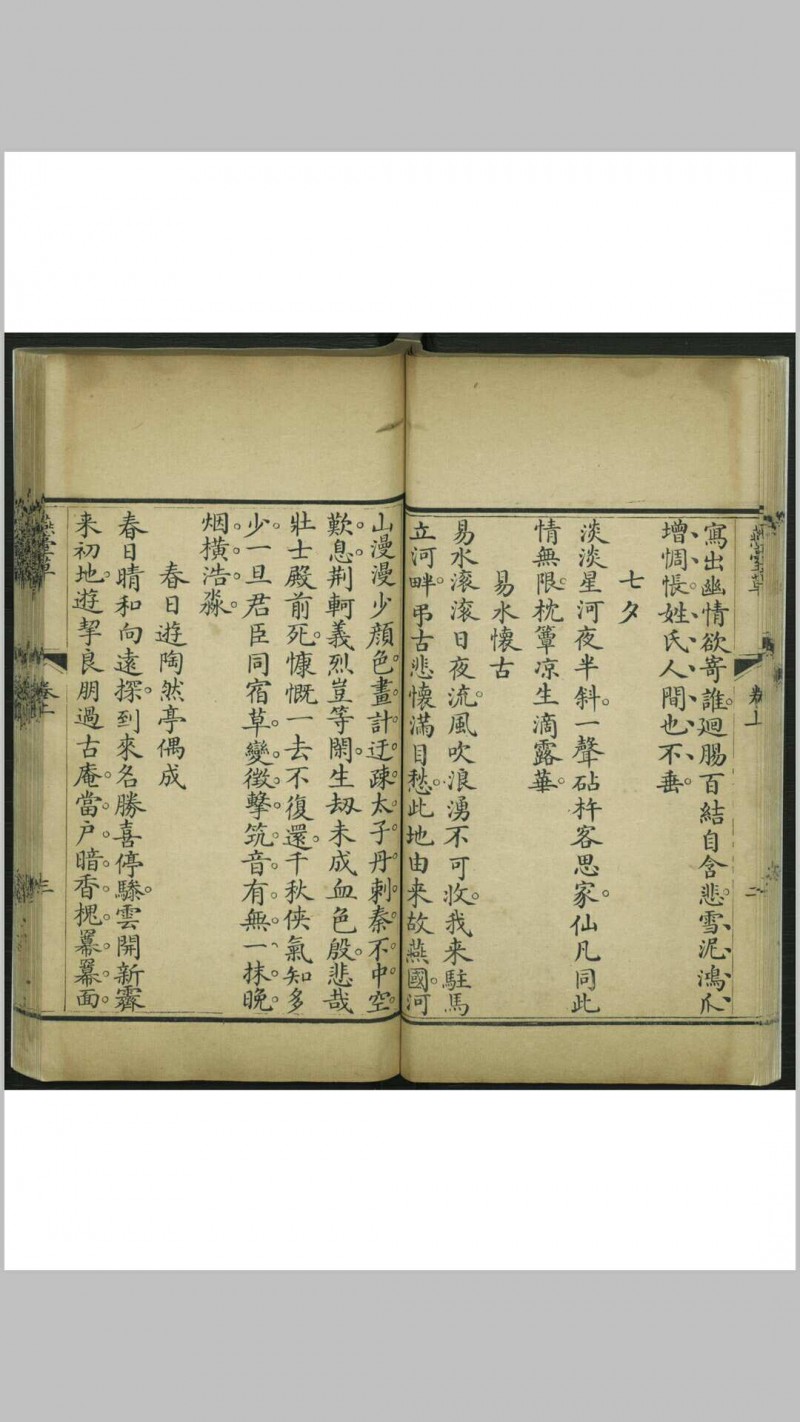 卷上
二
寫出幽情欲寄誰。廻腸百結自含悲。雪、泥、鴻、爪、
增、惆、悵。姓、氏、人、間、也、不、垂。
七夕
淡淡星河夜半斜。一聲砧杵客思家。仙凡同此
情無限。枕簟凉生滴露華。
易水懷古
易水滾滾日夜流。風吹浪湧不可收。我来駐馬
立河畔。弔古悲懷滿目愁。此地由来故燕國。河
山漫漫少顏色。畫。計。迂。疎。太。子。丹。刺。秦。不。中。空。
歎。息。荆軻義烈豈等閑。生劫未成血色殷。悲哉
壯士殿前死。慷慨一去不復還。千秋俠氣知多
少。一旦君臣同宿草。變。徵。擊。筑。音。有。無。一、抹。晚。
烟。橫。浩。淼。
春日遊陶然亭偶成
春日晴和向遠探。到來名勝喜停驂。雲開新霽
来初地。遊挈良朋過古庵。當。户。暗。香。槐。羃。羃。面。
三